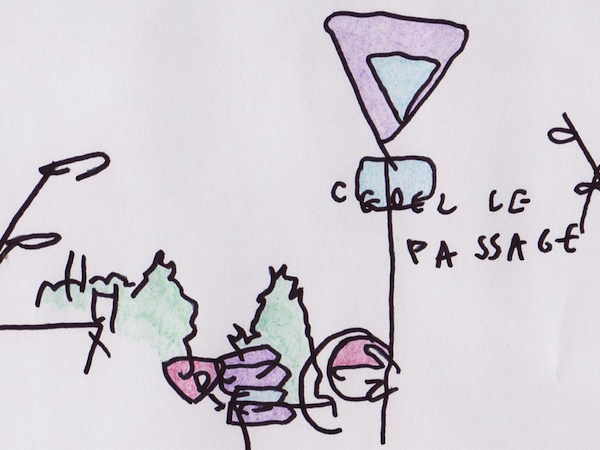 CEDEL LE
PASSAGE